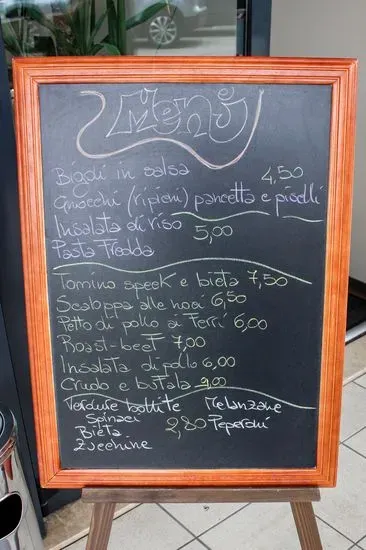 Menù
Bigoli in salsa 4,50
Gnocchi (ripieni) pancetta e piselli
Insalata di riso 5,00
Pasta Fredda
Tomino speek e bieta 7,50
Scaloppa alle noci 6,50
Petto di pollo ai Ferri 6,00
Roast-beef 7,00
Insalata di pollo 6,00
Crudo e bufala 9,00
Verdure bollite Melanzane
Spinaci 2,80 Peperoni
Bieta
Zucchine